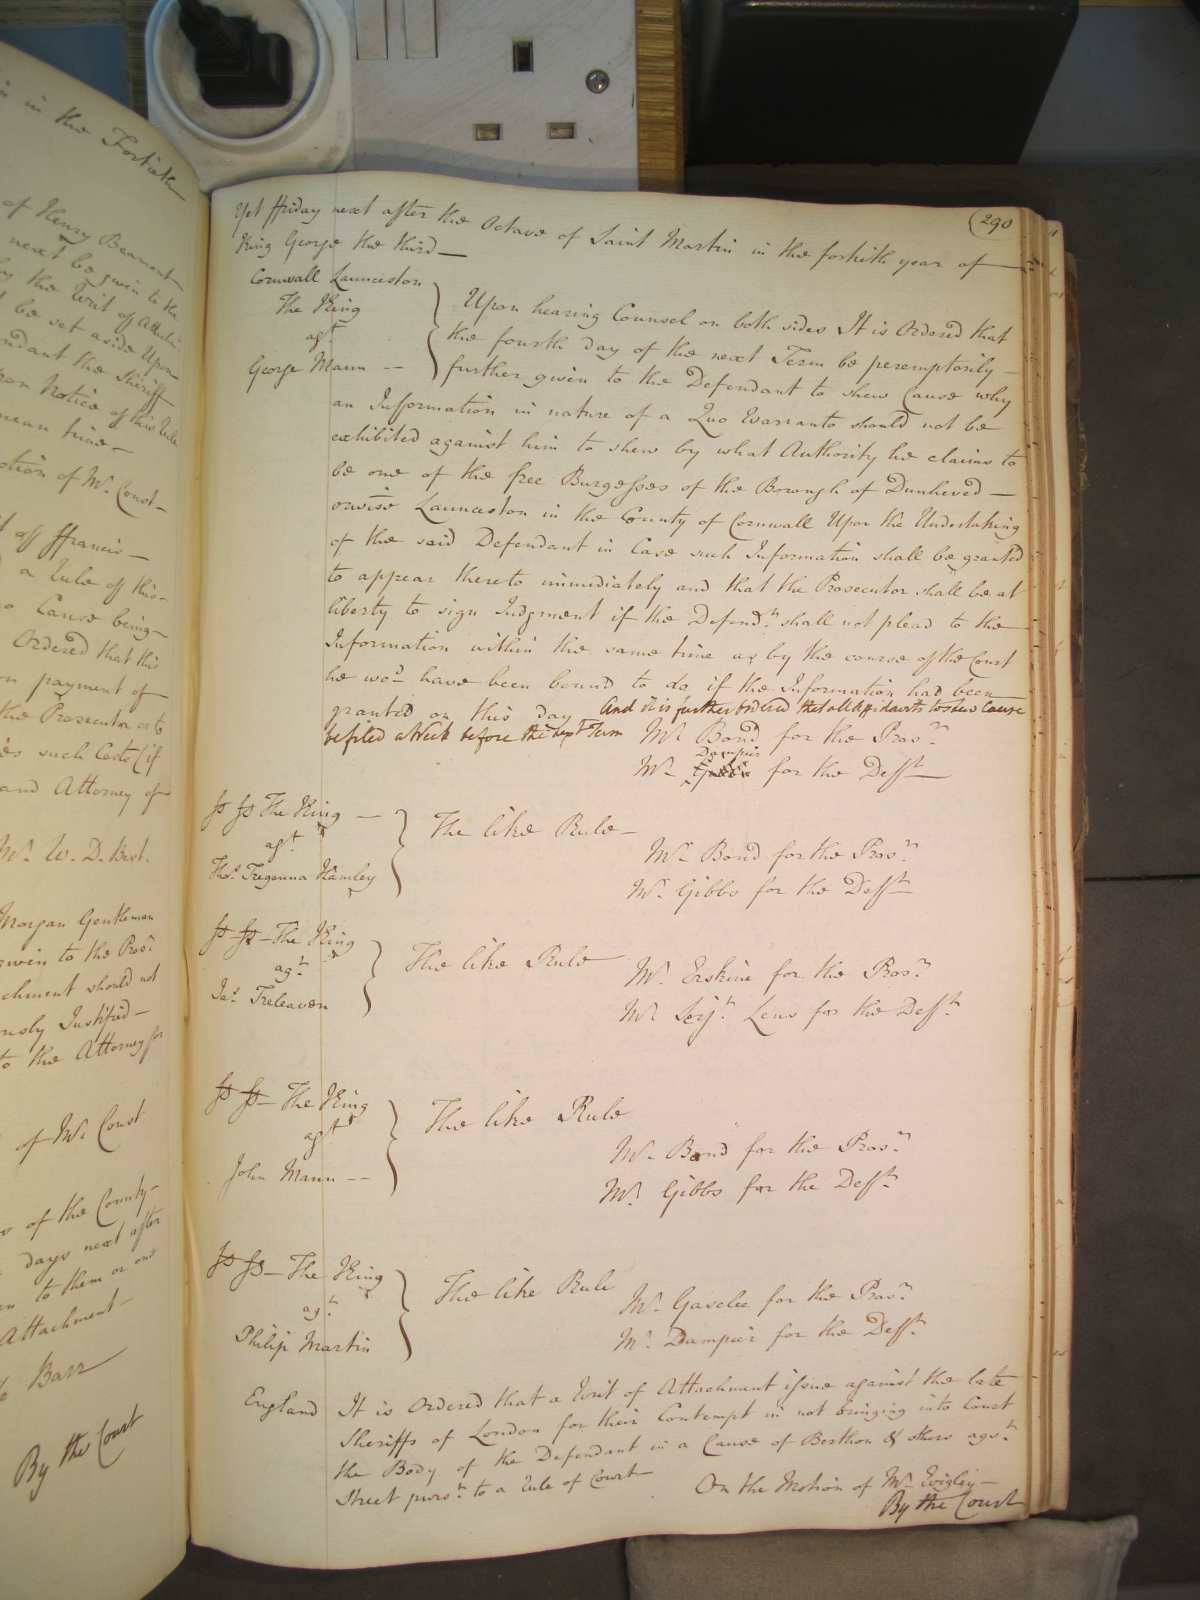 in in the Fortieth
of Henry Beamont
next be given to the
by the Writ of Attachmt.
be set aside Upon
ndant the Sheriff
pon Notice of this Rule
mean time
otion of Mr. Const
off ffrancis
a Rule of this
Cause being
Ordered that this
on payment of
the Prosecutor or to
such Costs (if
and Attorney of
Mr. W. D. Best.
Morgan Gentleman
given to the Prosr.
chment should not
ously Justified
to the Attorney for
of Mr. Const
of the County
days next after
to them or one
Attachment
Barr
By the Court
(290
Yet ffriday next after the Octave of Saint Martin in the fortieth year of
King George the third
Cornwall Launceston
The King
agt.
George Mann --
Upon hearing Counsel on both sides It is Ordered that
the fourth day of the next Term be peremptorily
further given to the Defendant to shew Cause why
an Information in nature of a Quo Warranto should not be
exhibited against him to shew by what Authority he claims to
be one of the free Burgesses of the Borough of Dunheved
orwise Launceston in the County of Cornwall Upon the Undertaking
of the said Defendant in Case such Information shall be granted
to appear thereto immediately and that the Prosecutor shall be at
liberty to sign Judgment if the Defendt. shall not plead to the
Information within the same time as by the course of the Court
he wod. have been bound to do if the Information had been
granted on this day And it is further Ordered that all Affidavits to shew Cause
be filed a Week before the next Term
Mr. Bond for the Prosr.
Dampier
Mr. for the Defft.
The King
agt.
Thos. Tregenna Hamley
The like Rule
Mr. Bond for the Prosr.
Mr. Gibbs for the Defft.
The King
agt.
Jas. Treleaven
The like Rule
Mr. Erskine for the Prosr.
Mr. Serjt. Lens for the Defft.
The King
agt.
John Mann --
The like Rule
Mr. Bond for the Prosr.
Mr. Gibbs for the Defft.
The King
agt.
Philip Martin
The like Rule
Mr. Gaselee for the Prosr.
Mr. Dampier for the Defft.
England It is Ordered that a Writ of Attachment issue against the late
Sheriffs of London for their Contempt in not bringing into Court
the Body of the Defendant in a Cause of Berthon & others agst.
Street purst. to a Rule of Court
On the Motion of Mr. Wigley
By the Court